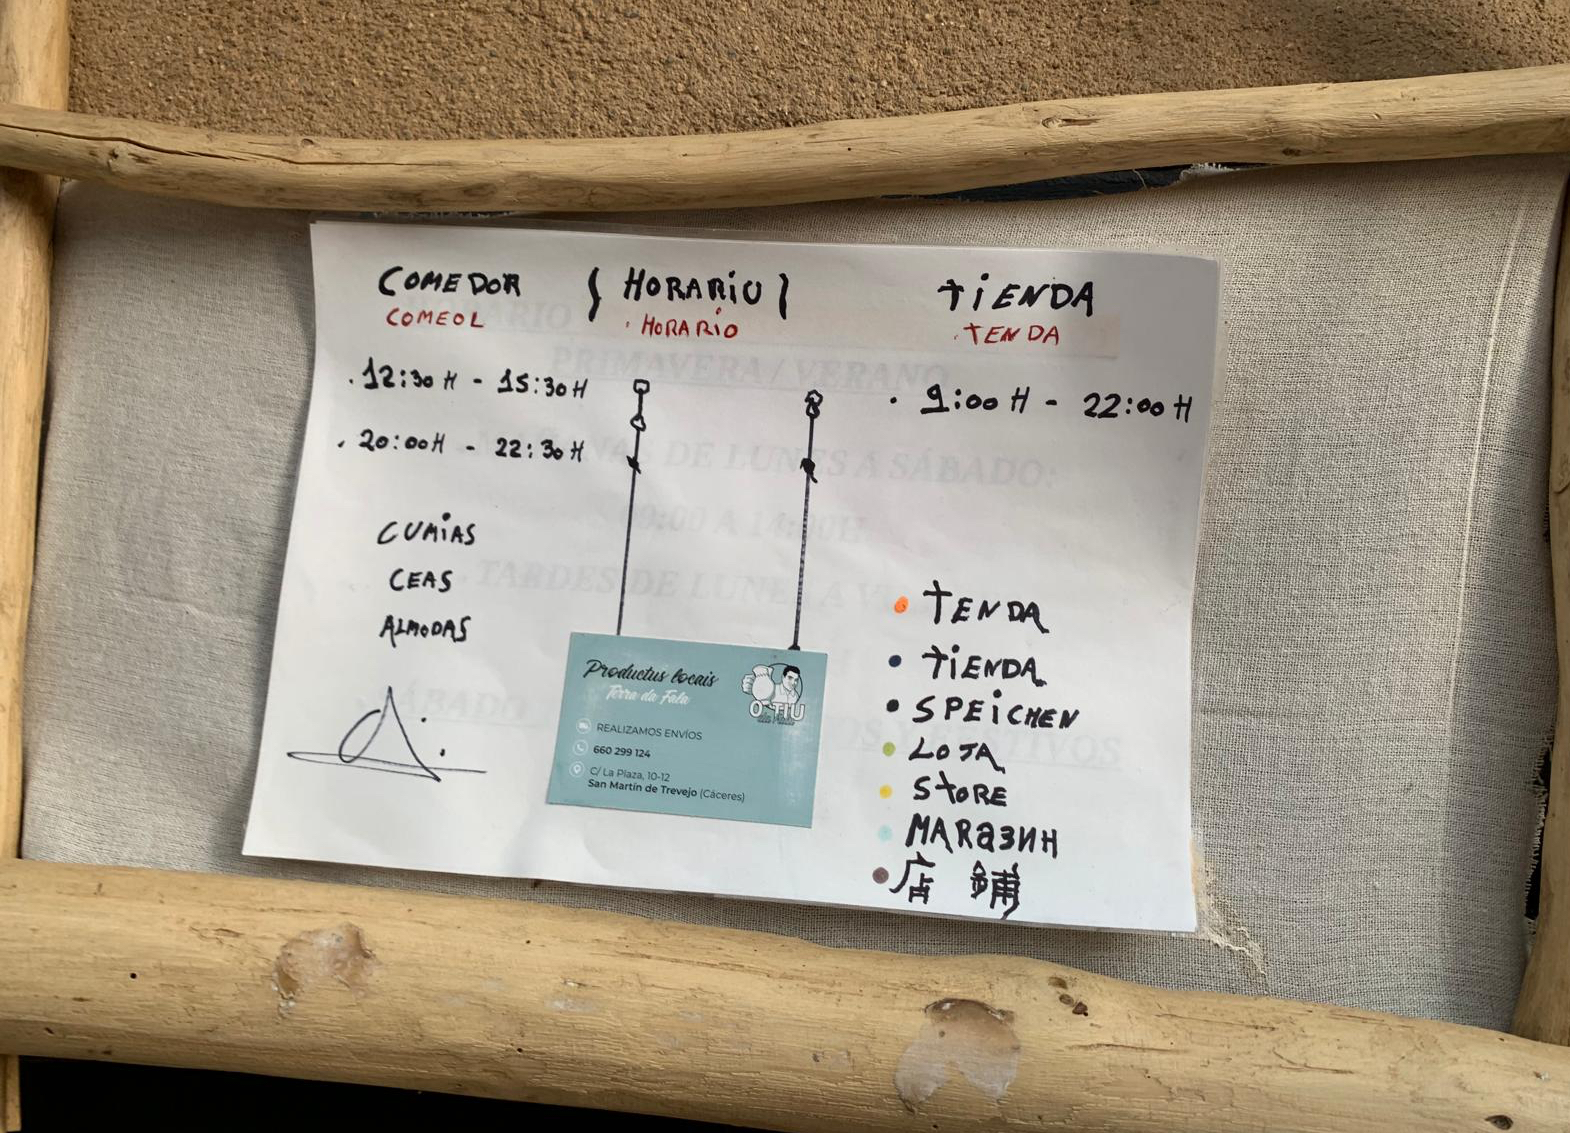 COMEDOR { HORARIU } TIENDA
COMEOL . HORARIO . TENDA
. 12:30 H - 15:30 H
. 20:00 H - 22:30 H
. 9:00 H - 22:00 H
CUMIAS
CEAS
ALMODAS
Productus locais
Terra da Fala
O TIU
REALIZAMOS ENVÍOS
660 299 124
C/ La Plaza, 10-12
San Martín de Trevejo (Cáceres)
• TENDA
• TIENDA
• SPEICHEN
• LOJA
• STORE
• МАRаЗИН
• 店 鋪
HORARIO
PRIMAVERA / VERANO
MAÑANAS DE LUNES A SÁBADO:
09:00 A 14:00H
TARDES DE LUNES A
SÁBADO